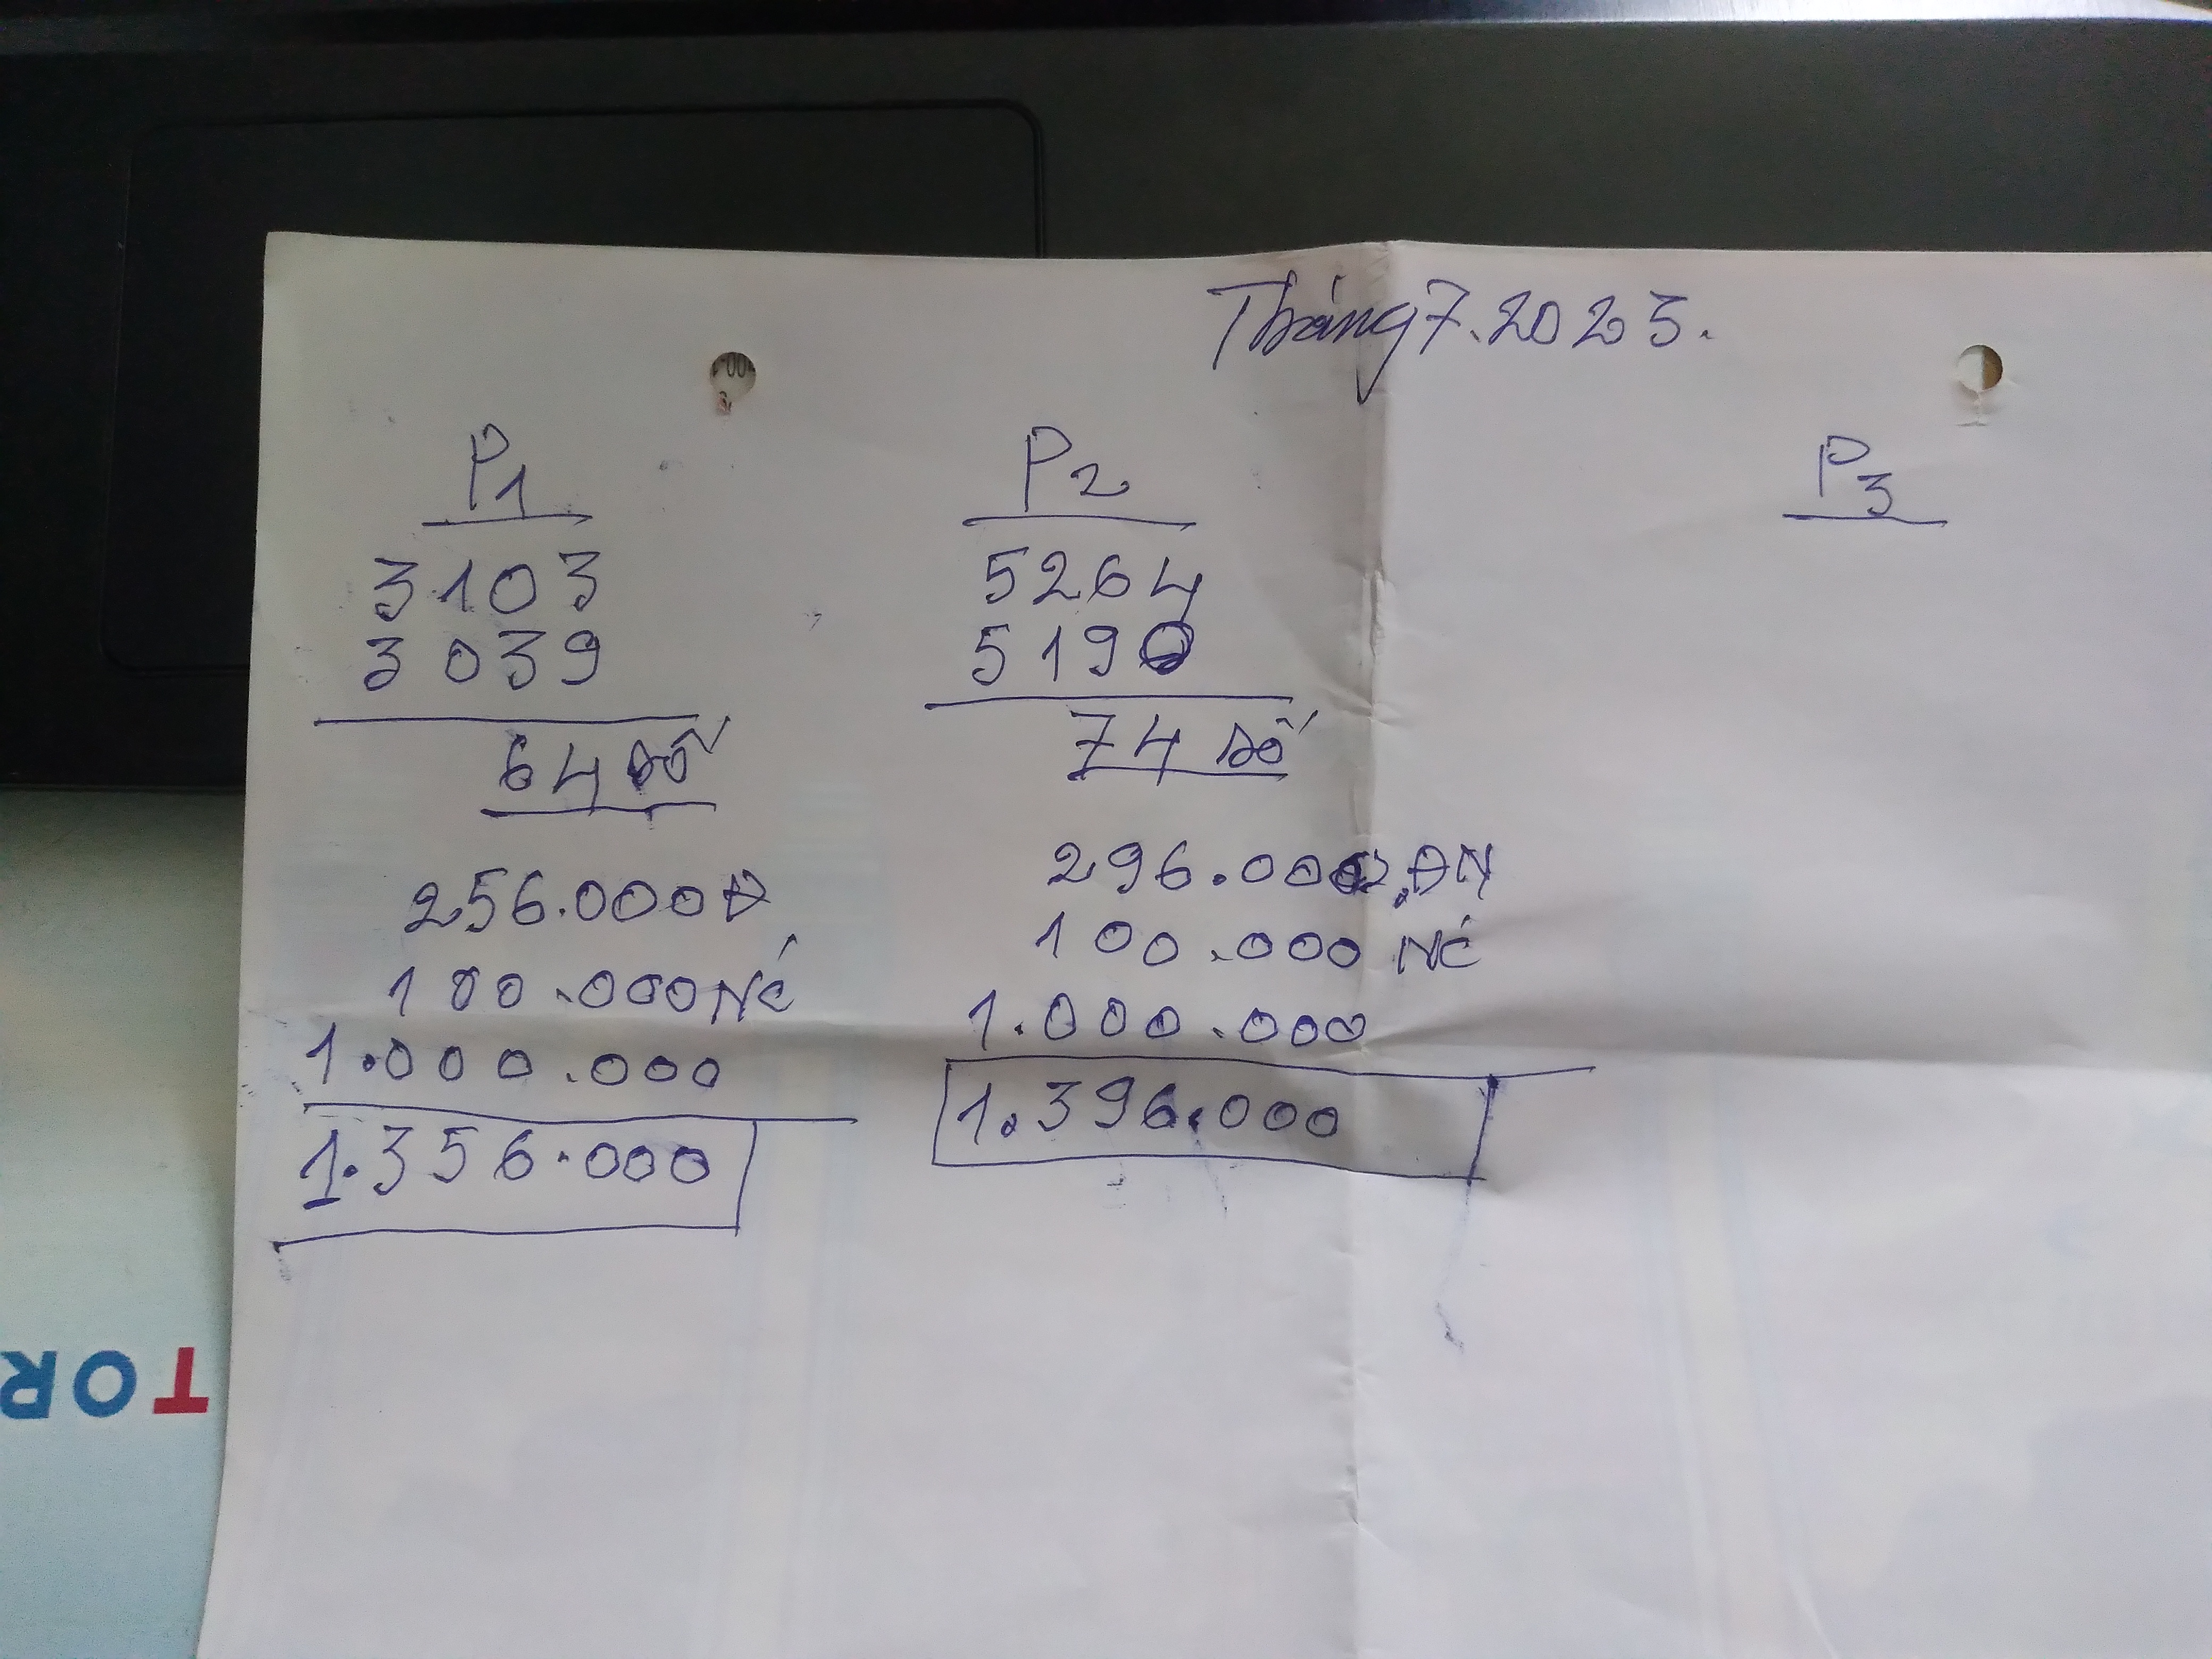 TOR
Tháng 7.2025.
P1
3103
3039
64 số
256.000 đ
100.000 NC
1.000.000
1.356.000
P2
5264
5190
74 số
296.000 ĐN
100.000 NC
1.000.000
1.396.000
P3